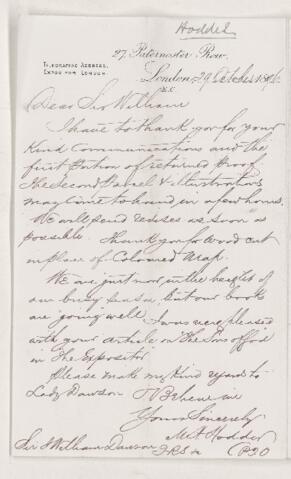 Hodder
27, Paternoster Row,
TELEGRAPHIC ADDRESS,
EXPOSITOR LONDON.
London, 29 October 189
E.C.
Dear Sir William
I have to thank you for your
Kind Communications and the
first portion of returned Proof.
The Second Parcel & illustrations
may come to hand in a few hours.
We will send revises as soon as
possible. Thank you for wood cut
in place of Coloured Map.
We are just now in the height of
our busy season but our books
are going well. I was very pleased
with your article on the Son of God
in The Expositor
Please make my kind regards to
Lady Dawson & Believe me
Yours Sincerely
M H Hodder
Sir J William Dawson
FRS &c